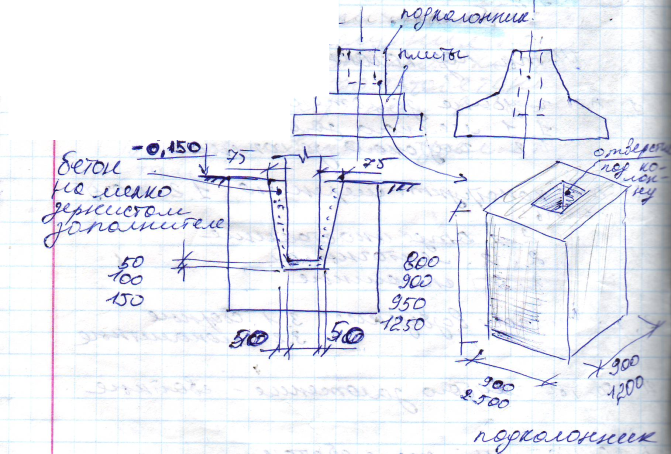 подколонник
плиты
-0,150
75
75
бетон
на мелко
зернистом
заполнителе
отверст
под ко-
лон-
ну
50
100
150
800
900
950
1250
50
50
900
2500
900
1200
подколонник